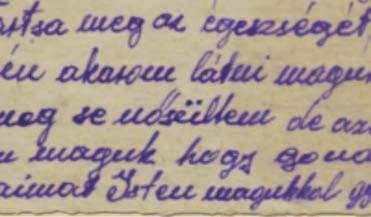 artsa meg az egeszségét
én akarom látni magu
meg se nősültem de az
maguk hogy gond
aimat Isten magukkal gy